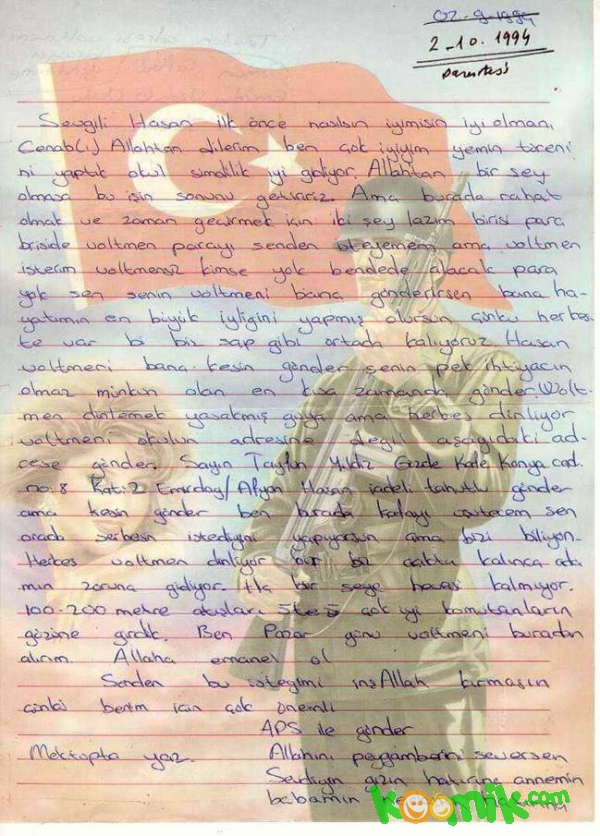 02-9-1994
2-10.1994
Pazartesi
Sevgili Hasan ilk önce nasılsın iyimisin iyi olman,
Cenab(ı) Allahtan dilerim ben çok iyiyim yemin töreni
ni yaptık okul şimdilik iyi gidiyor. Allahtan bir şey
olmazsa bu işin sonunu getiririz. Ama burada rahat
olmak ve zaman geçirmek için iki şey lazım birisi para
briside voltmen parayı senden isteyemem ama voltmen
isterim voltmensiz kimse yok bendede alacak para
yok sen senin voltmeni bana gönderirsen bana ha-
yatımın en büyük iyligini yapmış olursun çünkü herkes-
te var bi biz sap gibi ortada kalıyoruz Hasan
voltmeni bana kesin gönder senin pek ihtiyacın
olmaz mümkün olan en kısa zamanda gönder. Wolt-
men dinlemek yasakmış guya ama herkes dinliyor
voltmeni okulun adresine degil aşağıdaki ad-
rese gönder. Sayın Tayfun Yıldız Gözde Kafe Konya cad.
no:8 Kat:2 Emirdağ/Afyon Hasan iadeli tahutlu gönder
ama kesin gönder ben burada kafayı sen
orada serbesin istediyni yapıyorsun ama bizi biliyon.
Herkes voltmen dinliyor bir biz kalınca ada
mın zoruna gidiyor. Hiç bir şeye hevesi kalmıyor.
100-200 metre atışları 5te5 çok iyi komutanların
gözüne girdik. Ben Pazar günü voltmeni buradan
alırım. Allaha emanet ol
Senden bu isteğimi inşAllah kırmasın
çünkü benim için çok önemli
APS ile gönder
Mektupta yaz. Allahını peygamberini seversen
Sevdiyin gızın hatırına annemin
babamın
koomik.com